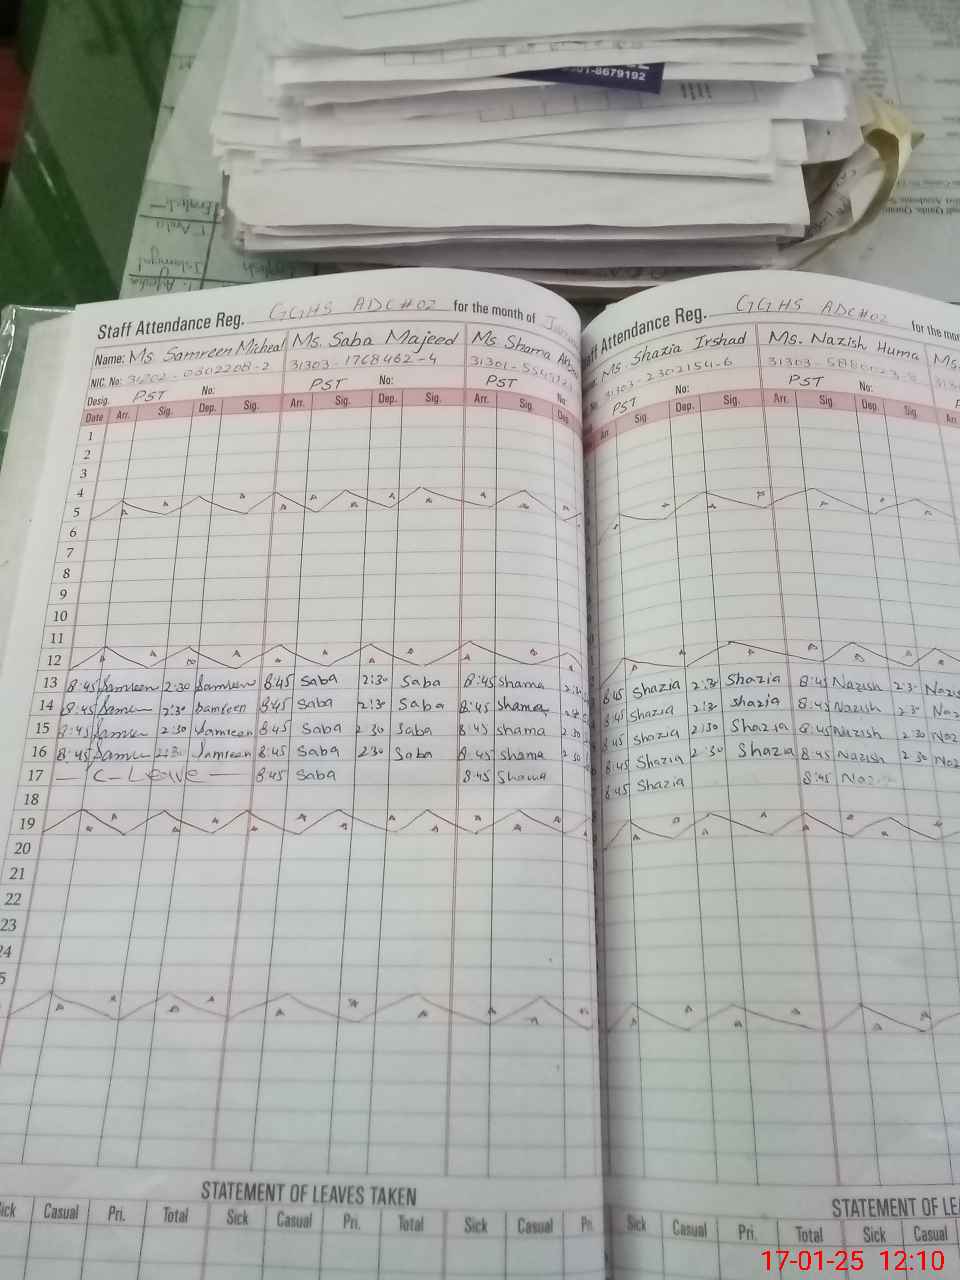 01-8679192
Staff Attendance Reg. GGHS ADC#02 for the month of
Name: Ms Samreen Micheal Ms. Saba Majeed Ms Shama
NIC. No: 31303-1768462-4
Desig. PST No: PST No: PST No:
Date Arr. Sig. Dep. Sig. Arr. Sig. Dep. Sig. Arr. Sig. Dep
1
2
3
4
5
6
7
8
9
10
11
12
13 8:45 Samreen 2:30 Samreen 8:45 Saba 2:30 Saba 8:45 Shama 2:30
14 8:45 2:30 Samreen 8:45 Saba 2:30 Saba 8:45 Shama
15 8:45 2:30 Samreen 8:45 Saba 2 30 Saba 8:45 Shama 2 30
16 8:45 2:30 Samreen 8:45 Saba 2:30 Saba 8:45 Shama 2 30
17 — C-Leave — 8:45 Saba 8:45 Shama
18
19
20
21
22
23
24
5
STATEMENT OF LEAVES TAKEN
Sick Casual Pri. Total Sick Casual Pri. Total Sick Casual Pri.
aff Attendance Reg. GGHS ADC#02 for the mon
Ms. Shazia Irshad Ms. Nazish Huma Ms.
31303-2302154-6
PST PST No:
Arr. Sig. Dep. Sig. Arr. Sig. Dep. Sig. Arr.
8:45 Shazia 2:30 Shazia 8:45 Nazish 2:3 Nazis
8:45 Shazia 2:3 Shazia 8:45 Nazish 2 3 Naz
8:45 Shazia 2:30 Shazia 8:45 Nazish 2 30 Naz
8:45 Shazia 2:30 Shazia 8:45 Nazish 2 30 Naz
8:45 Shazia 8:45
STATEMENT OF LEA
Sick Casual Pri. Total Sick Casual
17-01-25 12:10